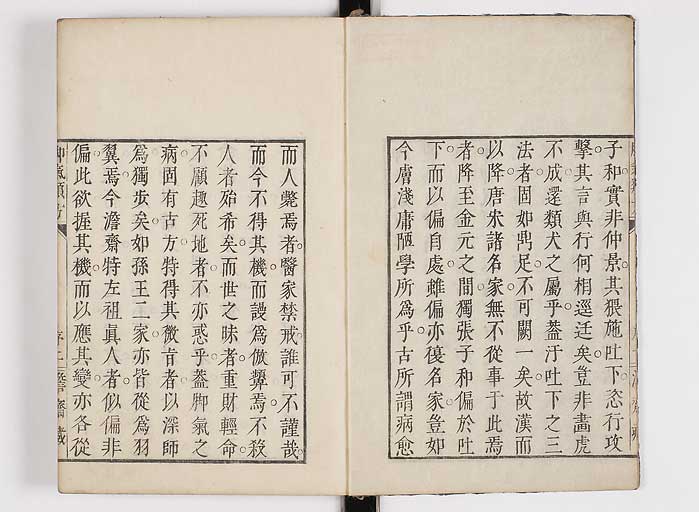 子和實非仲景其猥施吐下恣行攻
擊其言與行何相逕迋矣豈非畵虎
不成還類犬之屬乎蓋汗吐下之三
法者固如鼎足不可闕一矣故漢而
以降唐宋諸名家無不從事于此焉
者降至金元之間獨張子和偏於吐
下而以偏自處雖偏亦復名家豈如
今膚淺庸陋學所爲乎古所謂病愈
而人斃焉者醫家禁戒誰可不謹哉
而今不得其機而謾爲倣顰焉不殺
人者殆希矣而世之昧者重財輕命
不顧趣死地者不亦惑乎蓋脚氣之
病固有古方特得其微肯者以深師
爲獨步矣如孫王二家亦皆從爲羽
翼焉今澹齋特左祖眞人者似偏非
偏此欲握其機而以應其變亦各從
脚氣類方 序二 澹齋藏